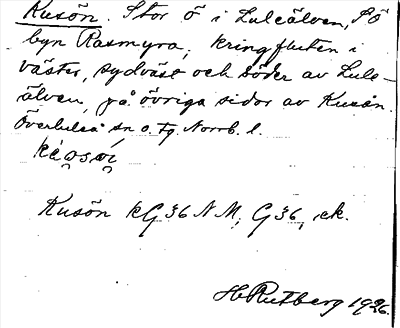 Kusön. Stor ö i Luleälven, SÖ
byn Rasmyra, kringfluten i
väster, sydväst och söder av Lule-
älven, på övriga sidor av Kusån.
Överluleå sn o. tg. Norrb. l.
Kusön KG 36 NM, G 36, ek.
H Rutberg 1926.